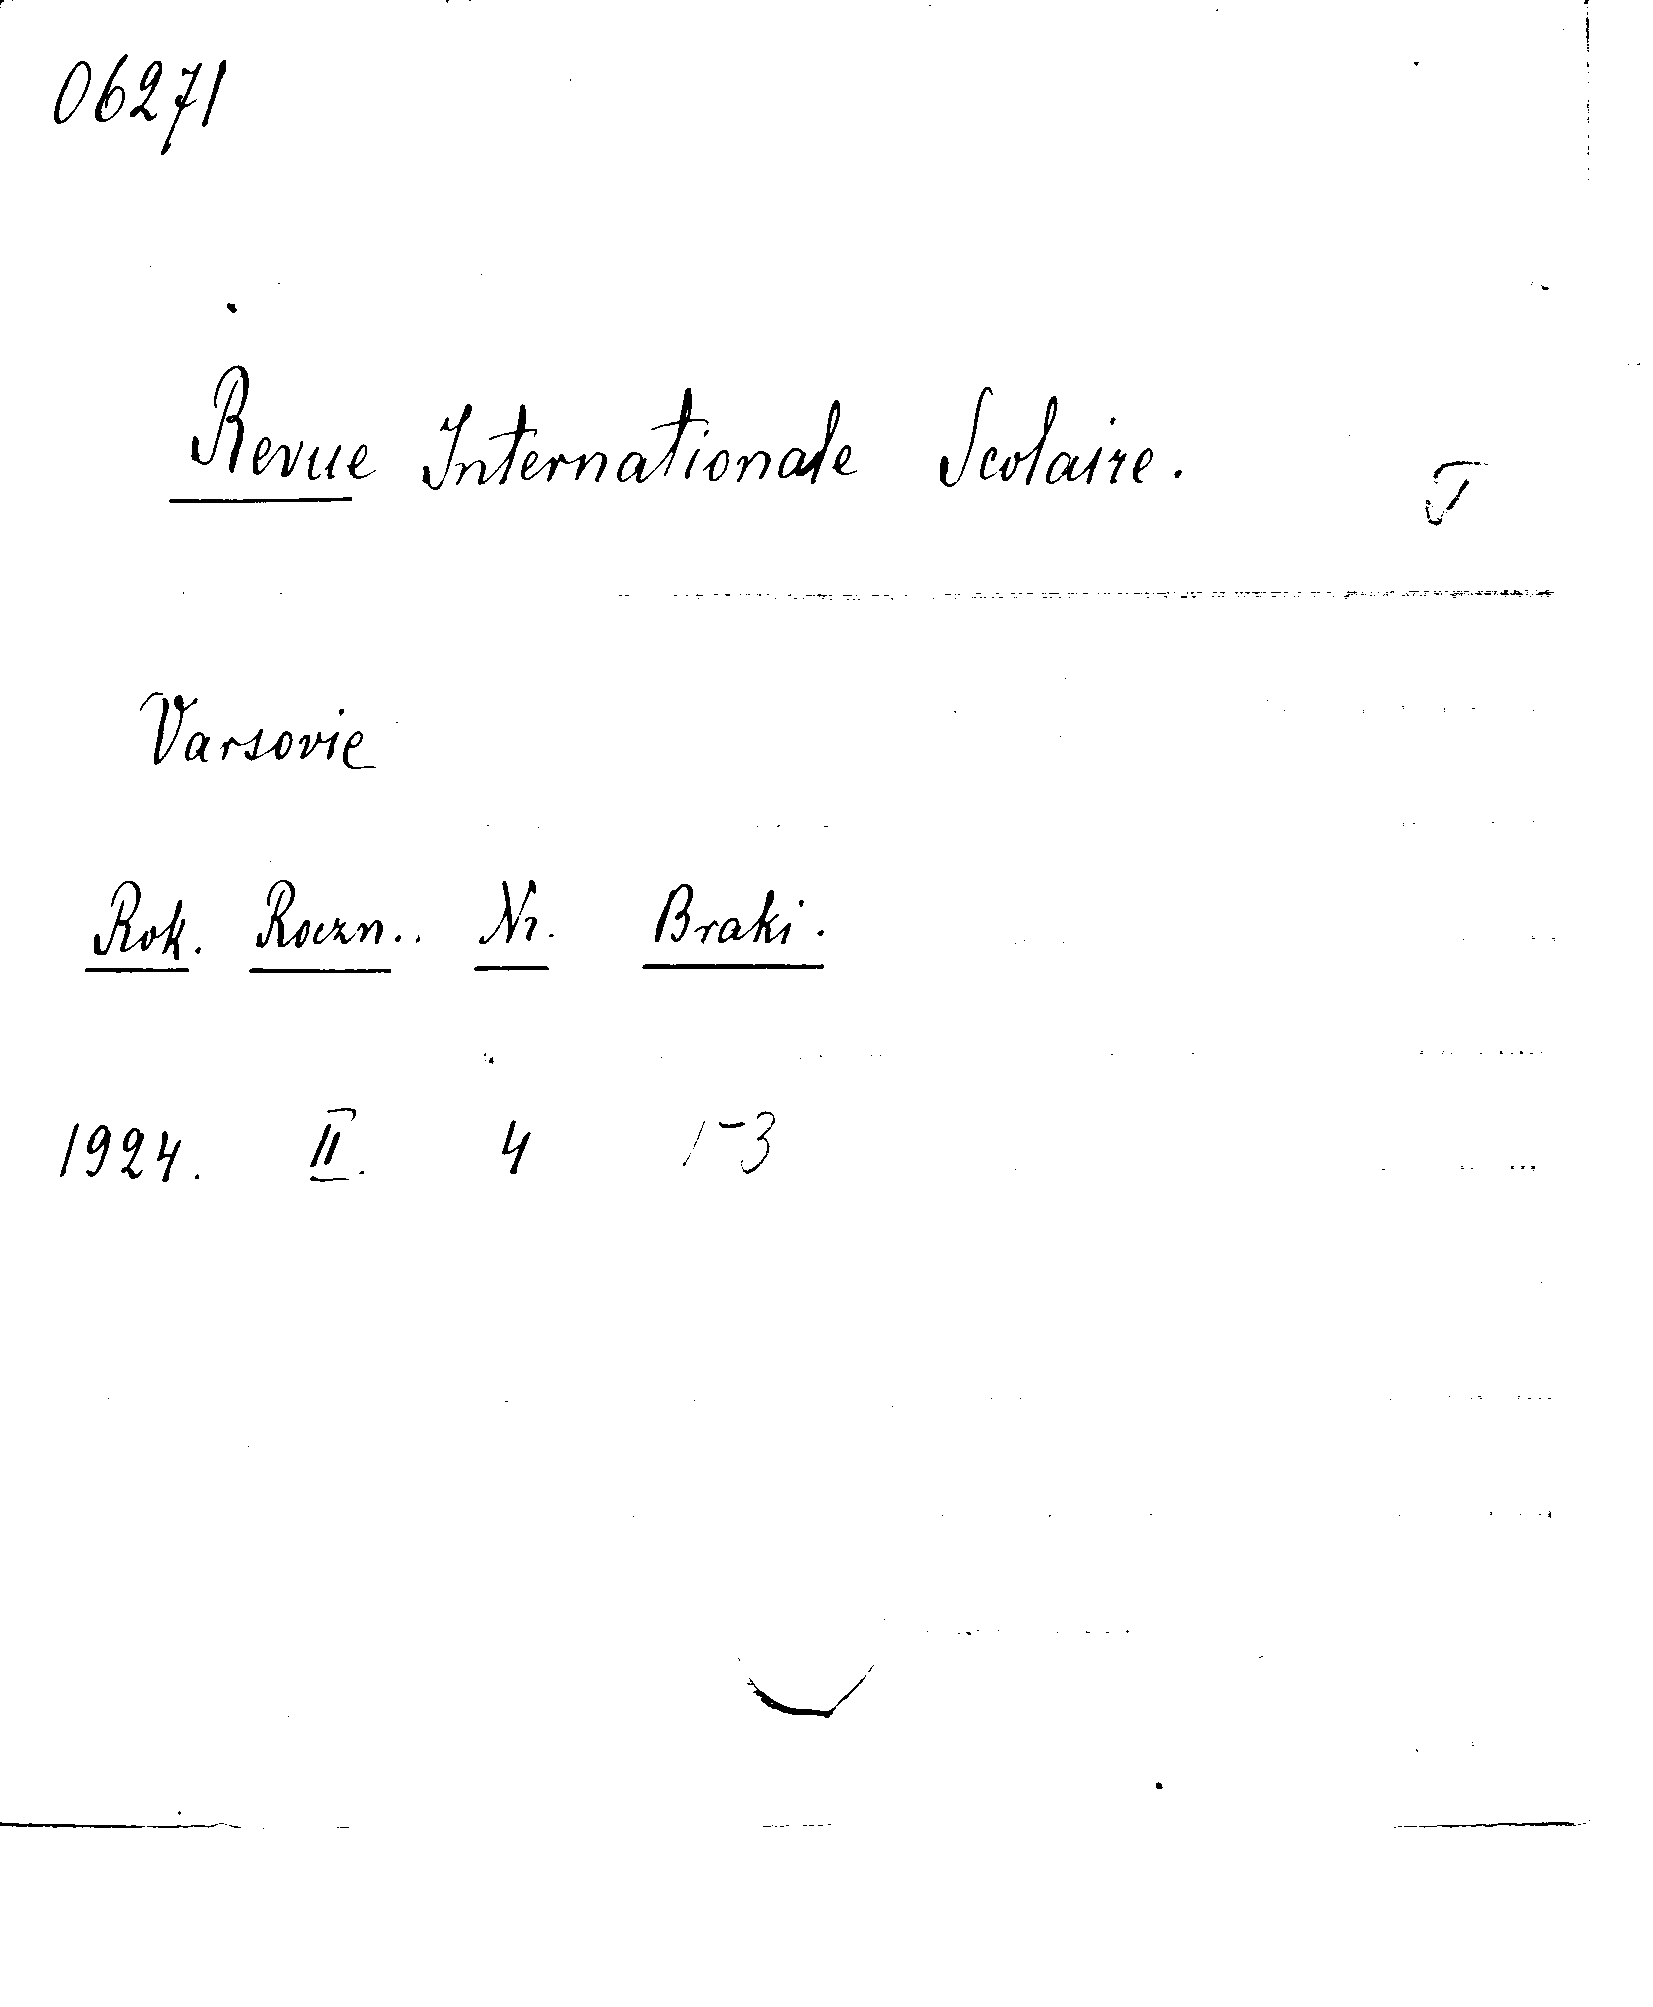 06271
Revue Internationale Scolaire.
T
Varsovie
Rok. Roczn.. Nr. Braki.
1924. II. 4 1-3